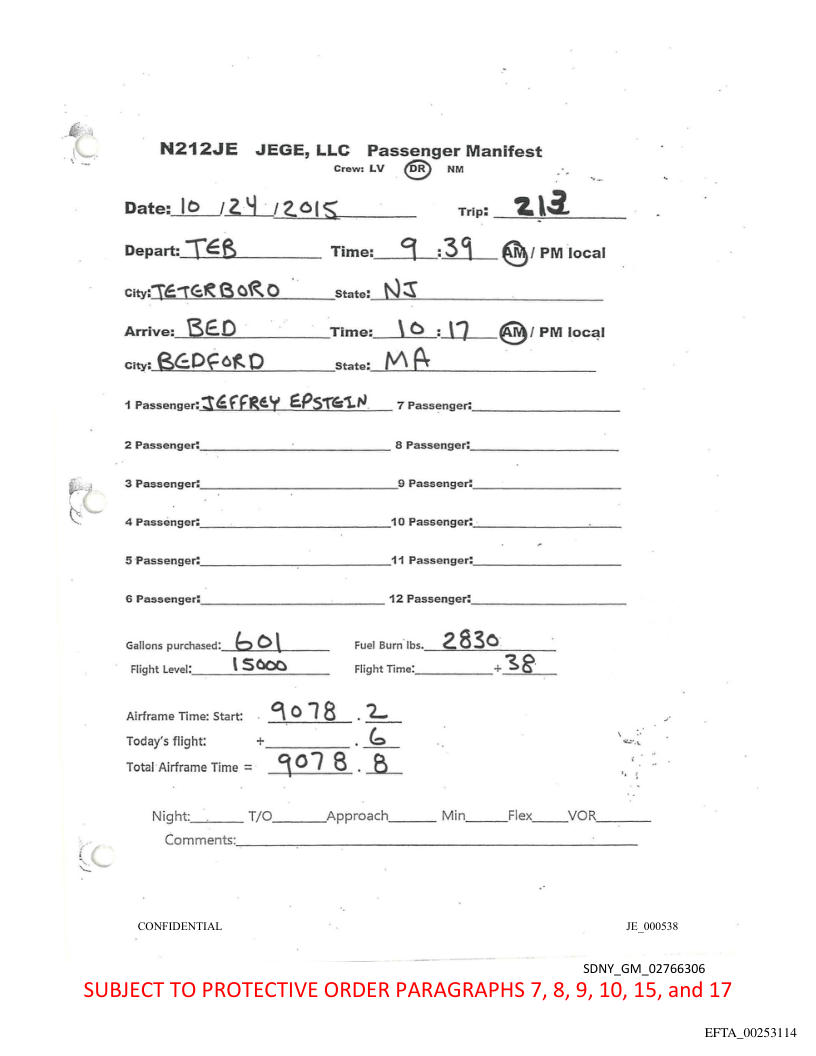 N212JE JEGE, LLC Passenger Manifest
Crew: LV DR NM
Date: 10 /24 /2015 Trip: 213
Depart: TEB Time: 9 :39 AM / PM local
City: TETERBORO State: NJ
Arrive: BED Time: 10 :17 AM / PM local
City: BEDFORD State: MA
1 Passenger: JEFFREY EPSTEIN 7 Passenger:
2 Passenger: 8 Passenger:
3 Passenger: 9 Passenger:
4 Passenger: 10 Passenger:
5 Passenger: 11 Passenger:
6 Passenger: 12 Passenger:
Gallons purchased: 601 Fuel Burn lbs. 2830
Flight Level: 15000 Flight Time: + 38
Airframe Time: Start: 9078 . 2
Today's flight: + . 6
Total Airframe Time = 9078 . 8
Night: T/O Approach Min Flex VOR
Comments:
CONFIDENTIAL JE_000538
SDNY_GM_02766306
SUBJECT TO PROTECTIVE ORDER PARAGRAPHS 7, 8, 9, 10, 15, and 17
EFTA_00253114